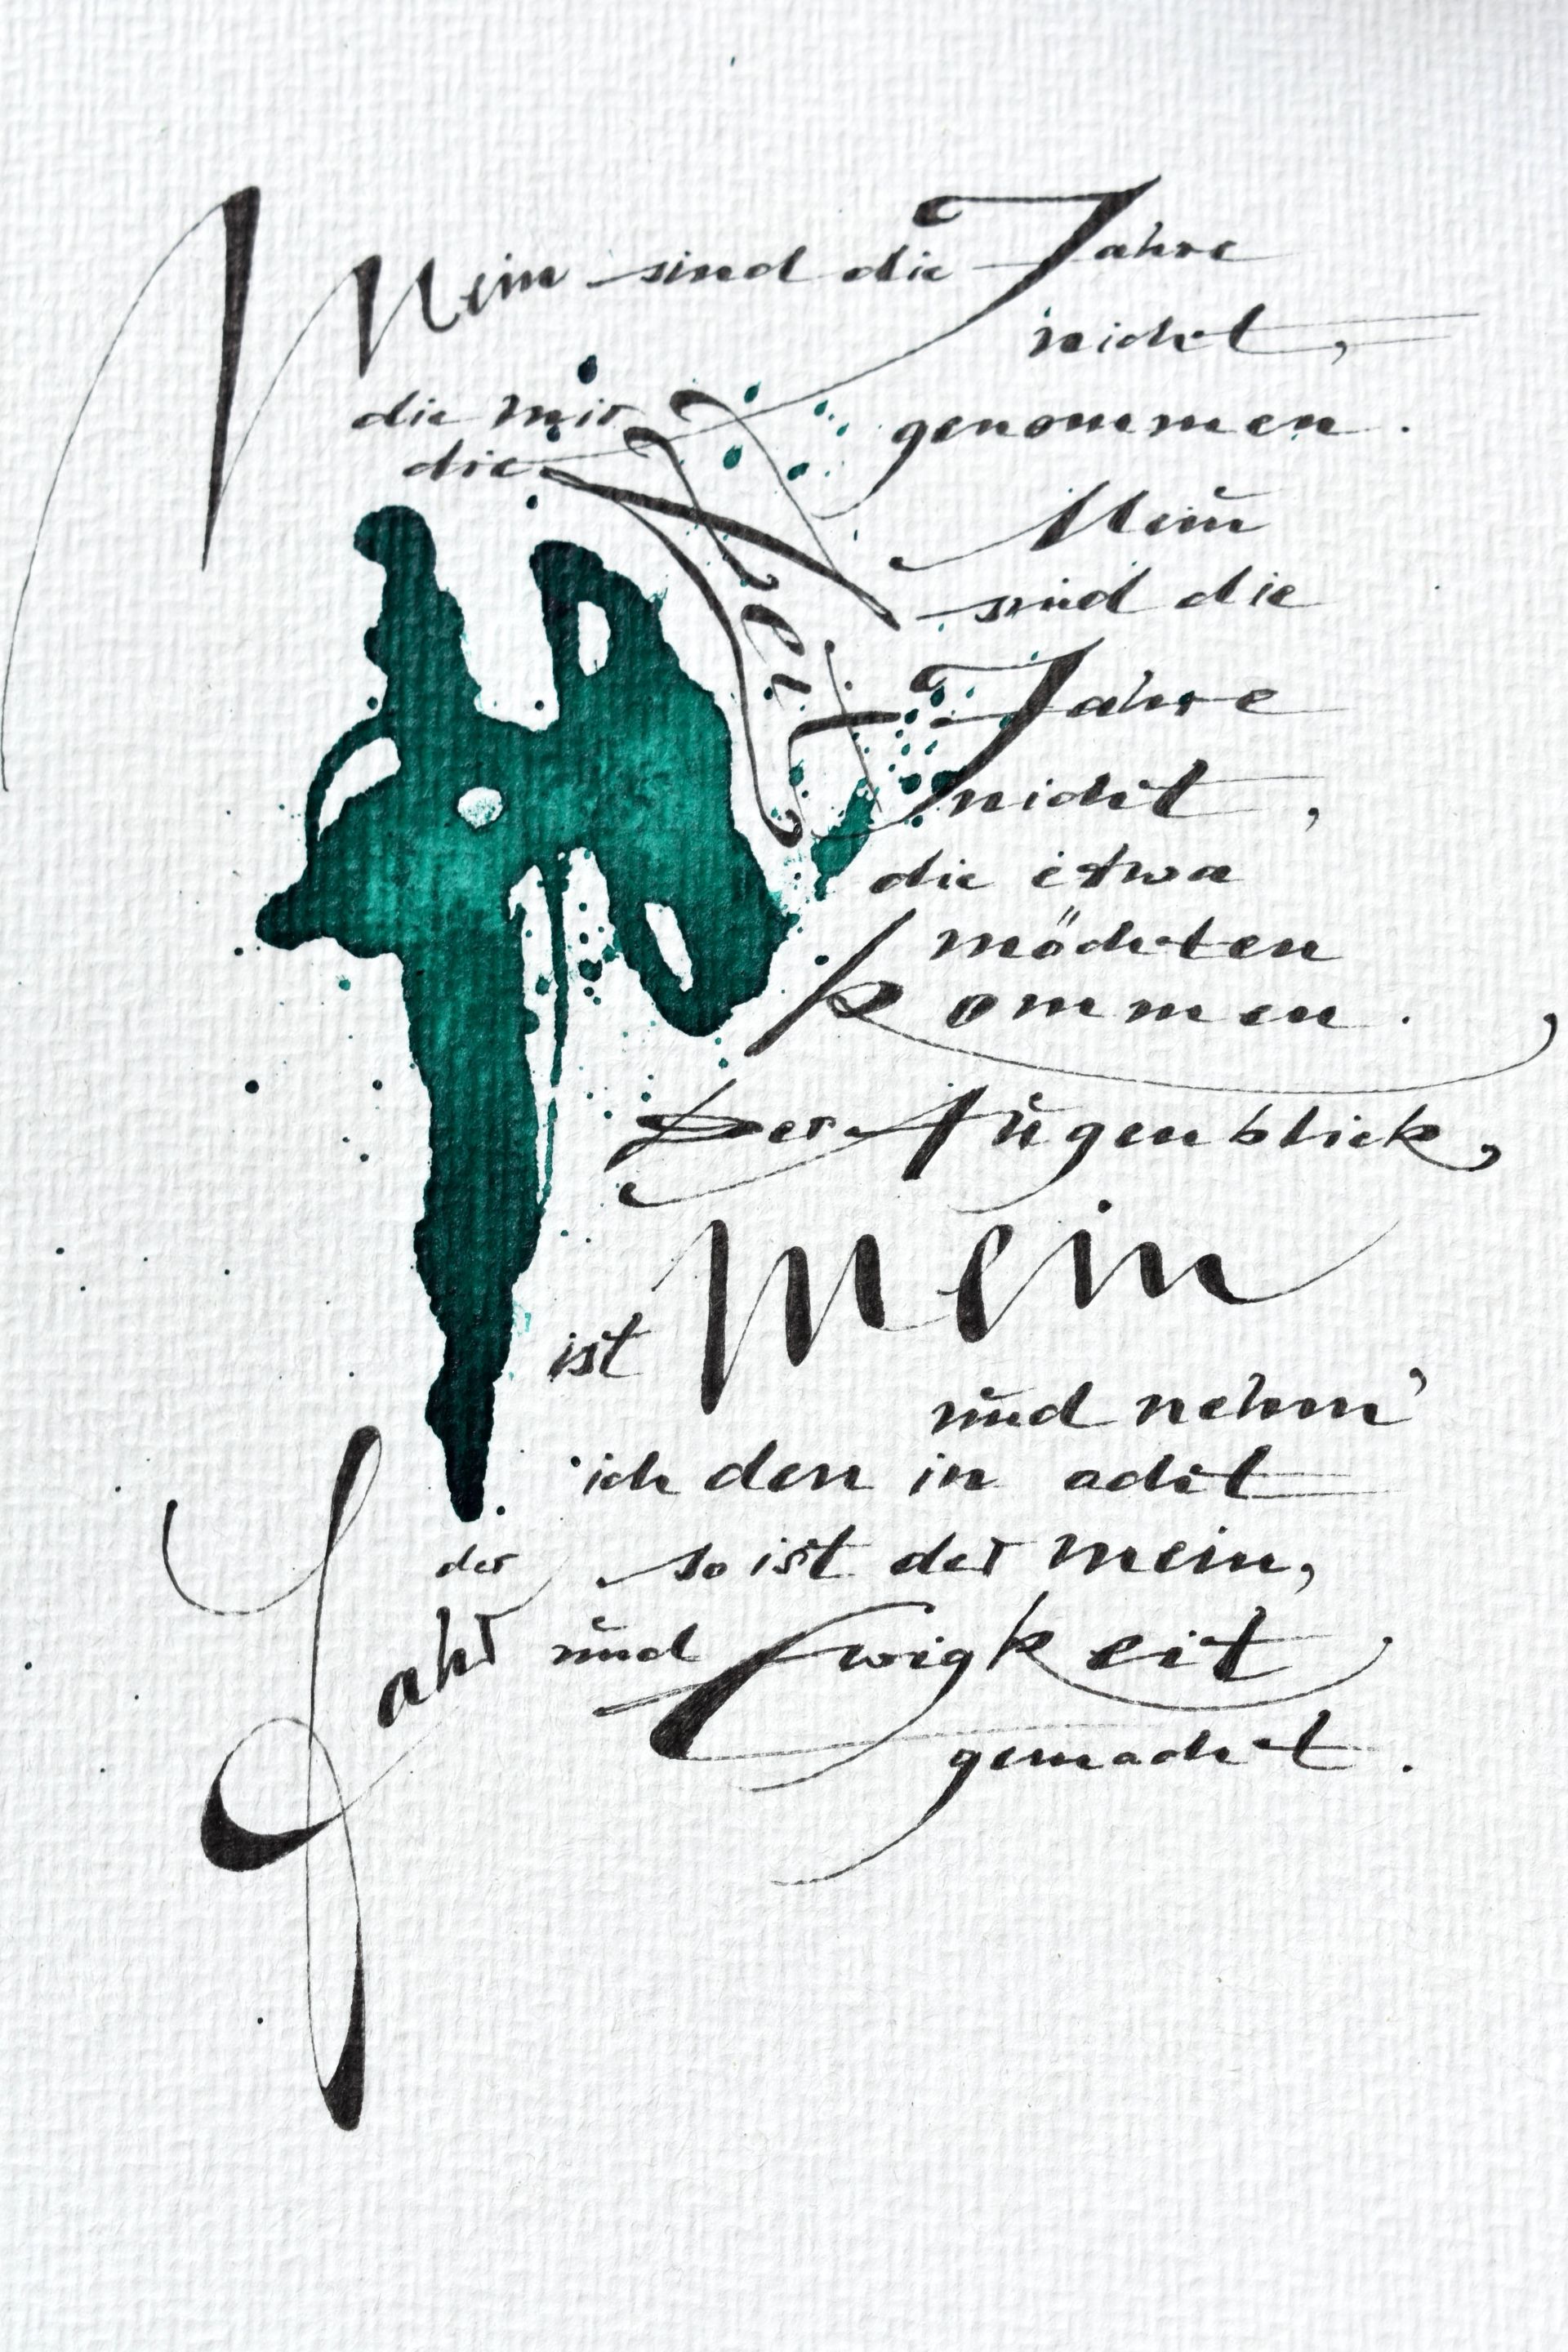 Mein sind die Jahre
nicht,
die mir
die Zeit
genommen.
Mein
sind die
Jahre
nicht,
die etwa
möchten
kommen.
Der Augenblick
ist mein
und nehm'
ich den in acht
so ist der mein,
der
Jahr und Ewigkeit
gemacht.